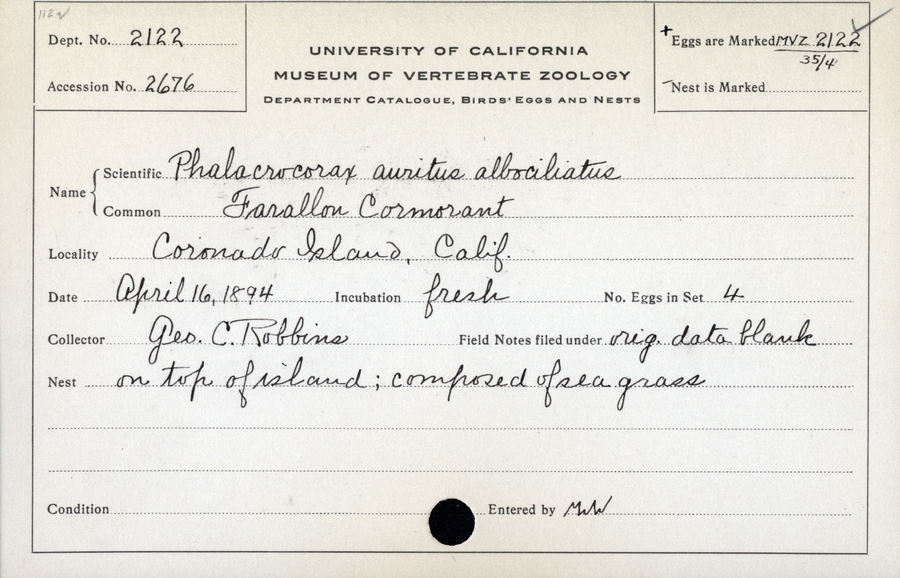 112
Dept. No. 2122
Accession No. 2676
UNIVERSITY OF CALIFORNIA
MUSEUM OF VERTEBRATE ZOOLOGY
DEPARTMENT CATALOGUE, BIRDS' EGGS AND NESTS
+ Eggs are Marked MVZ 2122 ✓
35/4
- Nest is Marked
Name { Scientific Phalacrocorax auritus albociliatus
Common Farallon Cormorant
Locality Coronado Island, Calif.
Date April 16, 1894 Incubation fresh No. Eggs in Set 4
Collector Geo. C. Robbins Field Notes filed under orig. data blank
Nest on top of island; composed of sea grass
Condition Entered by